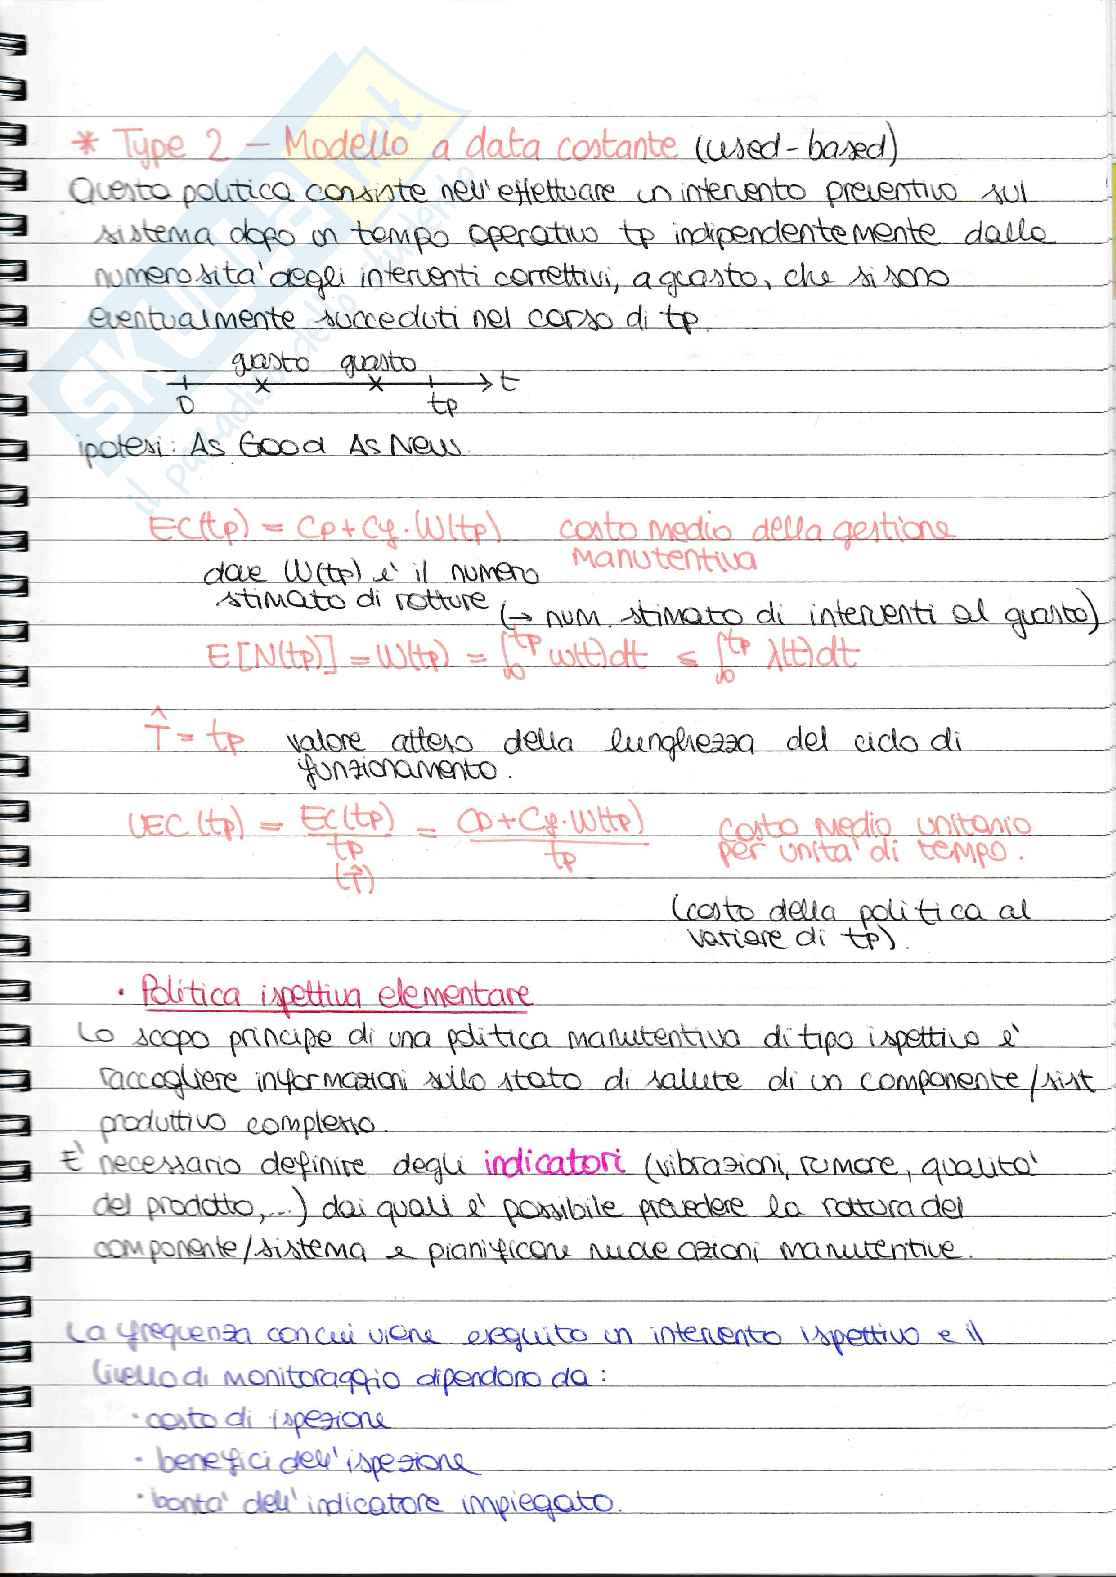 * Type 2 - Modello a data costante (used-based)
Questa politica consiste nell'effettuare un intervento preventivo sul
sistema dopo un tempo operativo tp indipendentemente dalla
numerosità degli interventi correttivi, a guasto, che si sono
eventualmente succeduti nel corso di tp.
guasto guasto
t
0 tp
ipotesi: As Good As New
EC(tp) = Cp + Cf · W(tp) costo medio della gestione
manutentiva
dove W(tp) è il numero
stimato di rotture
(→ num. stimato di interventi al guasto)
E[N(tp)] = W(tp) = ∫₀^tp w(t)dt ≤ ∫₀^tp λ(t)dt
T̂ = tp valore atteso della lunghezza del ciclo di
funzionamento.
UEC(tp) = EC(tp) / tp (T̂) = Cp + Cf · W(tp) / tp costo medio unitario
per unità di tempo.
(costo della politica al
variare di tp).
· Politica ispettiva elementare
Lo scopo principe di una politica manutentiva di tipo ispettivo è
raccogliere informazioni sullo stato di salute di un componente/sist
produttivo complesso.
E' necessario definire degli indicatori (vibrazioni, rumore, qualità
del prodotto,...) dai quali è possibile prevedere la rottura del
componente/sistema e pianificare nuove azioni manutentive.
La frequenza con cui viene eseguito un intervento ispettivo e il
livello di monitoraggio dipendono da:
· costo di ispezione
· benefici dell'ispezione
· bontà dell'indicatore impiegato.
SKUOLA.net
il paradiso dello studente